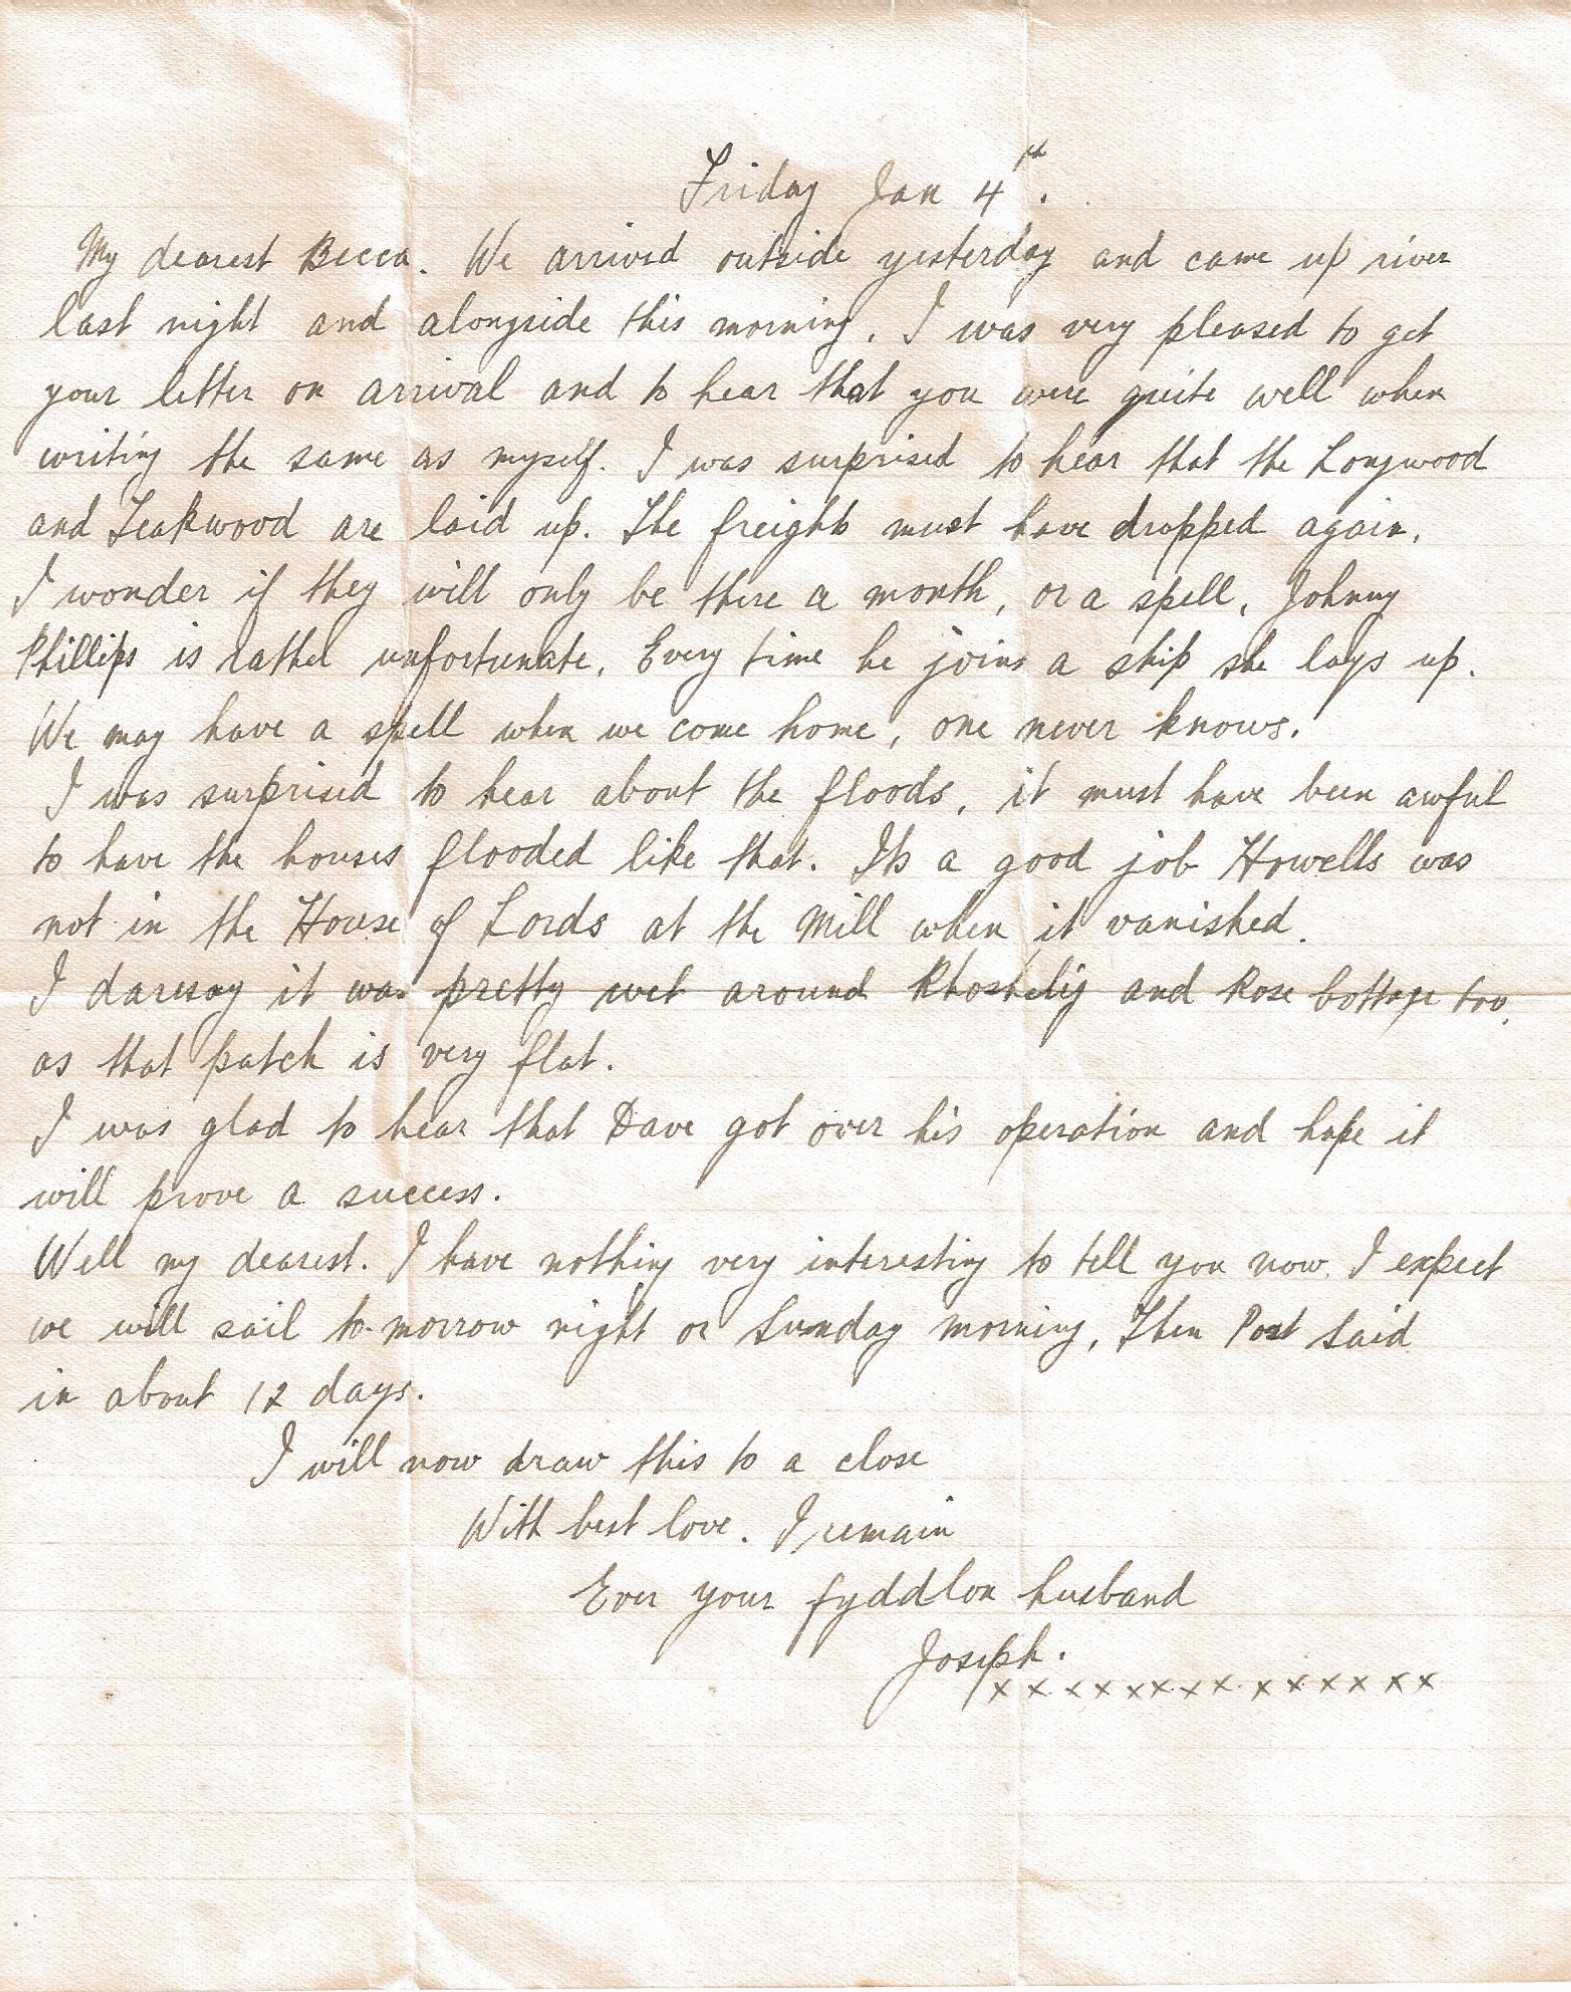 Friday Jan 4th.
My dearest Becca. We arrived outside yesterday and came up river
last night and alongside this morning. I was very pleased to get
your letter on arrival and to hear that you were quite well when
writing the same as myself. I was surprised to hear that the Longwood
and Teakwood are laid up. The freights must have dropped again.
I wonder if they will only be there a month, or a spell, Johnny
Phillips is rather unfortunate. Every time he joins a ship she lays up.
We may have a spell when we come home, one never knows.
I was surprised to hear about the floods, it must have been awful
to have the houses flooded like that. Its a good job Howells was
not in the House of Lords at the Mill when it vanished.
I daresay it was pretty wet around and Rose Cottage too,
as that patch is very flat.
I was glad to hear that Dave got over his operation and hope it
will prove a success.
Well my dearest. I have nothing very interesting to tell you now. I expect
we will sail to-morrow night or Sunday morning, Then Port Said
in about 12 days.
I will now draw this to a close
With best love. I remain
Ever your fyddlon husband
Joseph.
x x x x x x x x x x x x x x